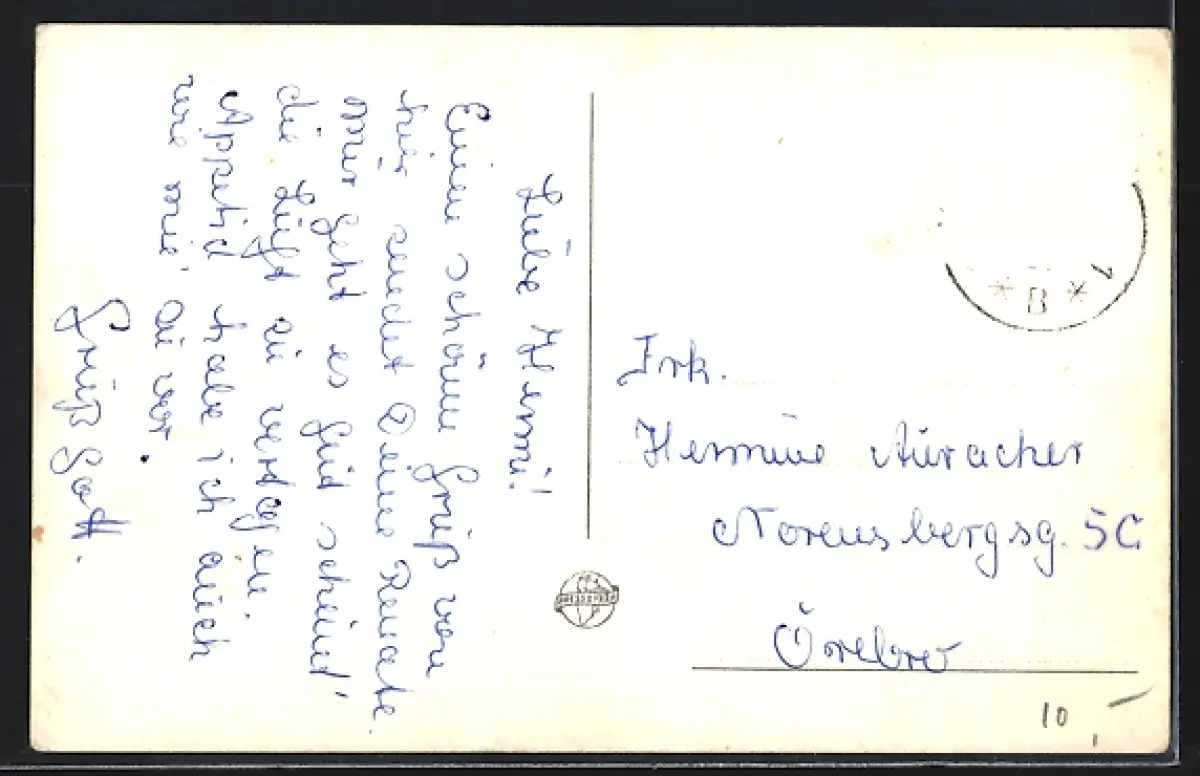 Liebe Hermi!
Einen schönen Gruß von
hier sendet Deine Renate.
Mir geht es gut scheint
die Luft zu vertragen.
Appetid habe ich auch
wie nie zu vor.
Grüß Gott.
* B * 1
Frk.
Hermine Auracher
Norensbergsg. 5C
Örebro
10